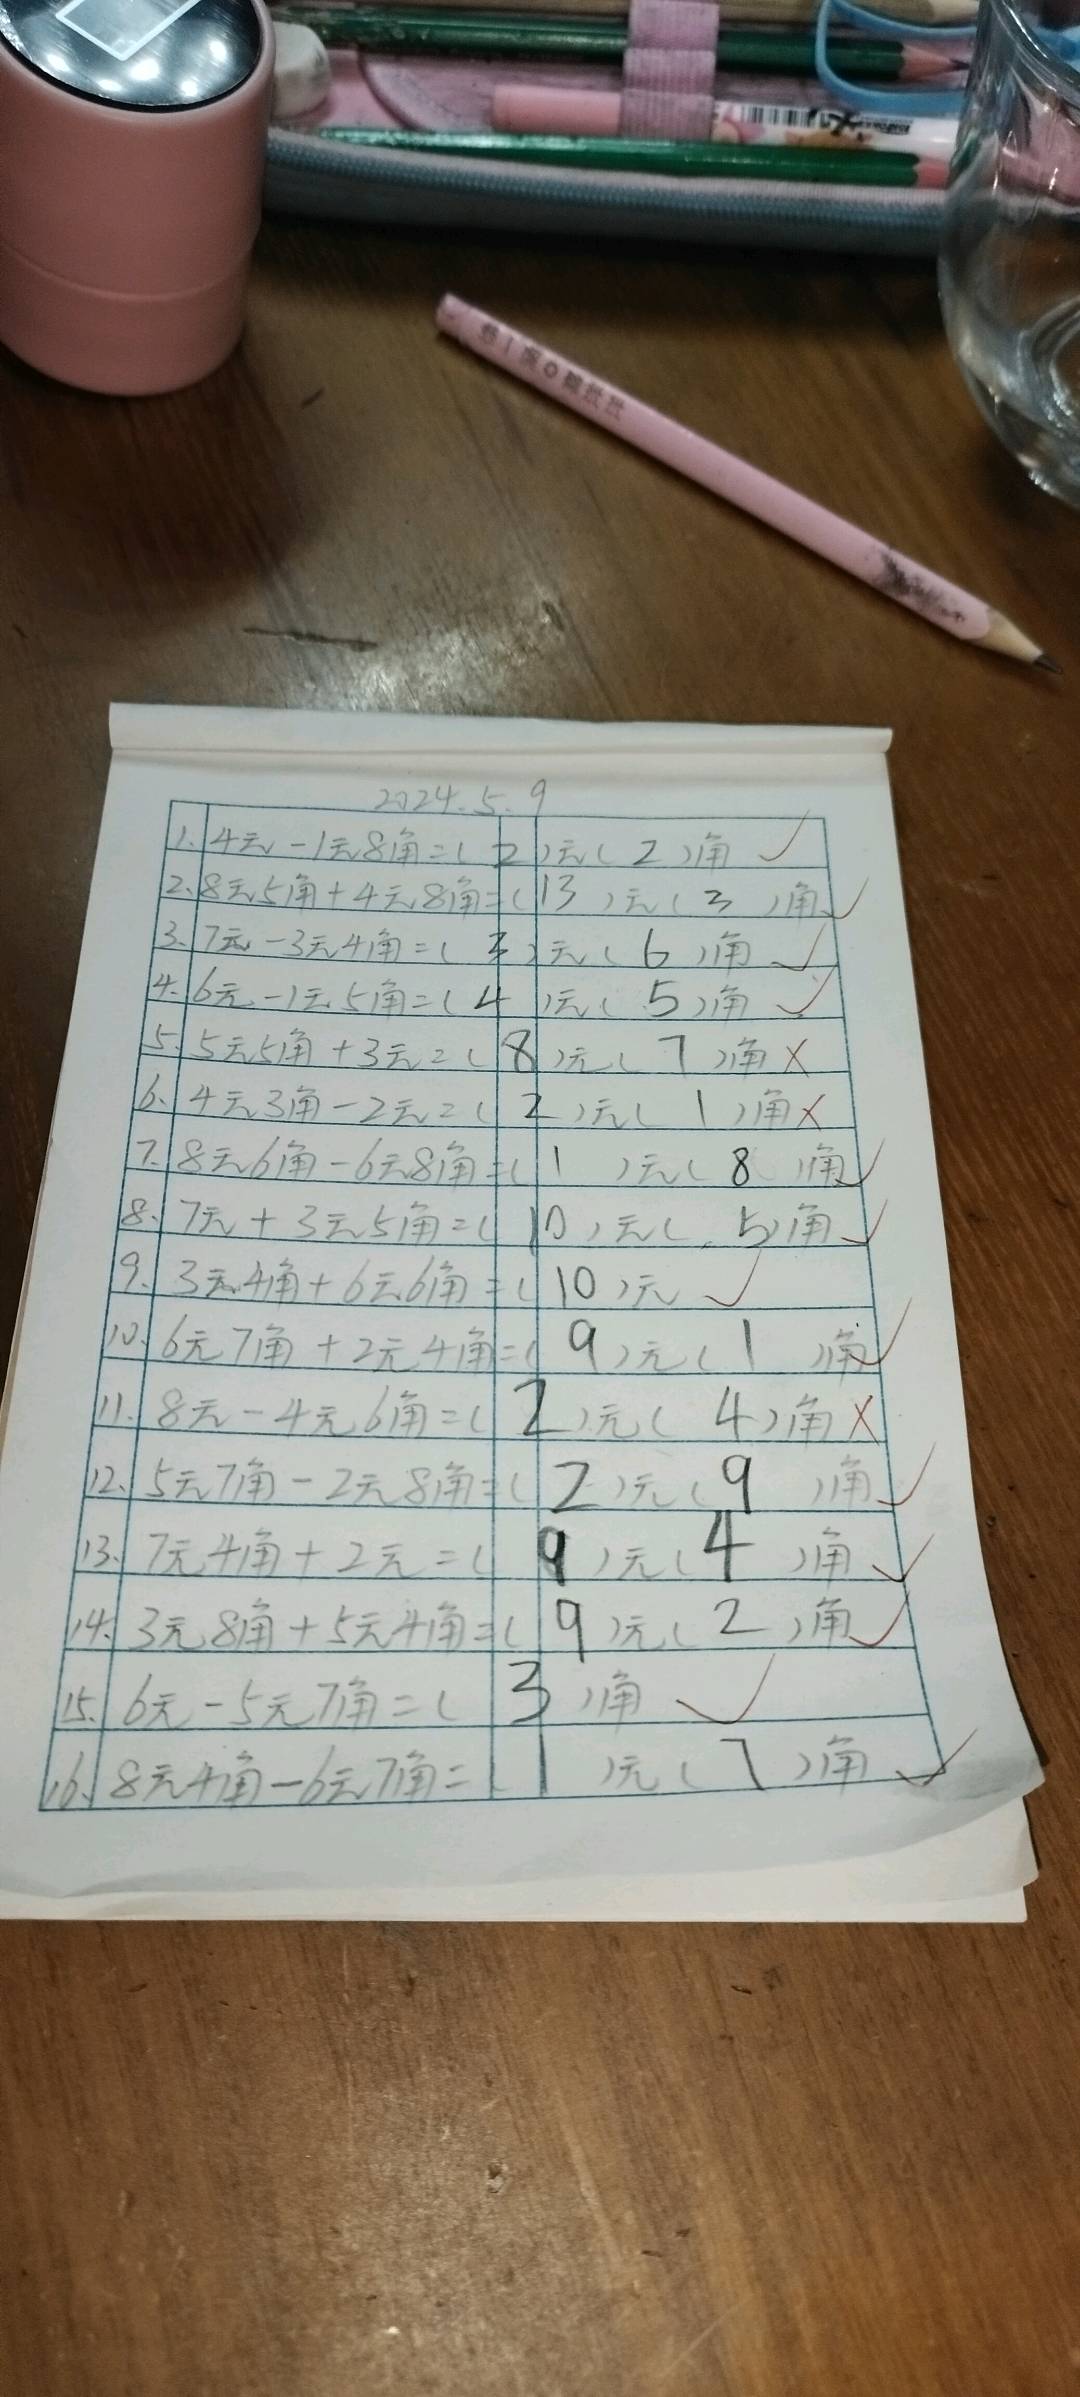 2024.5.9
1. 4元-1元8角=(2)元(2)角 ✓
2. 8元5角+4元8角=(13)元(3)角 ✓
3. 7元-3元4角=(3)元(6)角 ✓
4. 6元-1元5角=(4)元(5)角 ✓
5. 5元5角+3元=(8)元(7)角 ×
6. 4元3角-2元=(2)元(1)角 ×
7. 8元6角-6元8角=(1)元(8)角 ✓
8. 7元+3元5角=(10)元(5)角 ✓
9. 3元4角+6元6角=(10)元 ✓
10. 6元7角+2元4角=(9)元(1)角 ✓
11. 8元-4元6角=(2)元(4)角 ×
12. 5元7角-2元8角=(2)元(9)角 ✓
13. 7元4角+2元=(9)元(4)角 ✓
14. 3元8角+5元4角=(9)元(2)角 ✓
15. 6元-5元7角=(3)角 ✓
16. 8元4角-6元7角=(1)元(7)角 ✓